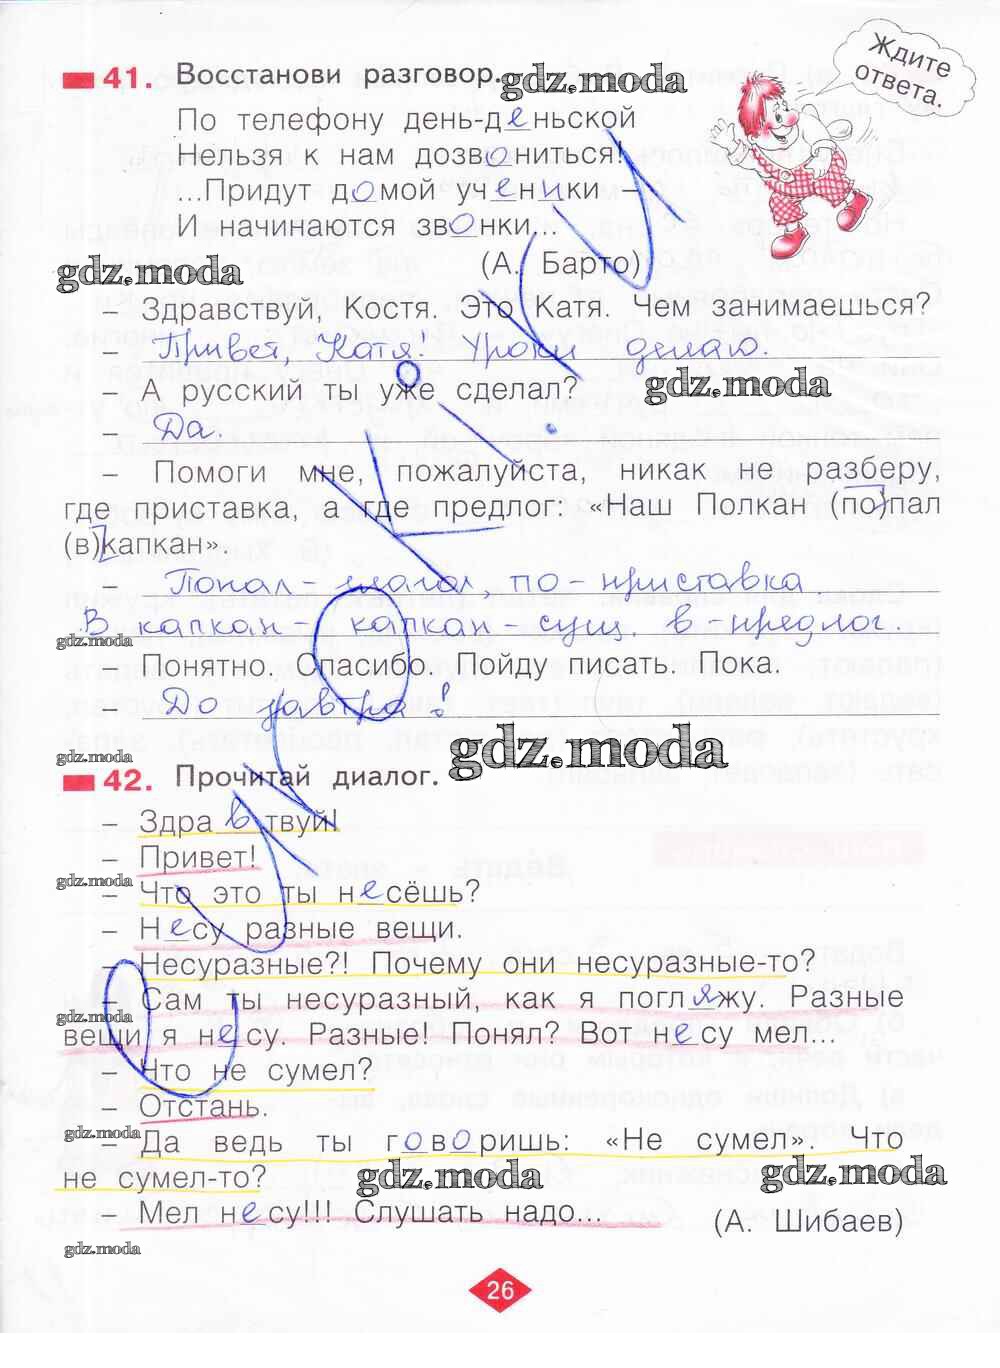 Ждите
ответа.
41. Восстанови разговор.
gdz.moda
По телефону день-деньской
Нельзя к нам дозвониться!
...Придут домой ученики –
И начинаются звонки...
(А. Барто)
gdz.moda
– Здравствуй, Костя. Это Катя. Чем занимаешься?
– Привет, Катя! Уроки делаю.
– А русский ты уже сделал?
gdz.moda
– Да.
– Помоги мне, пожалуйста, никак не разберу,
где приставка, а где предлог: «Наш Полкан (по)пал
(в)капкан».
– Попал – глагол, по – приставка
В капкан – капкан – сущ. в – предлог.
gdz.moda
– Понятно. Спасибо. Пойду писать. Пока.
– До завтра!
gdz.moda
gdz.moda
42. Прочитай диалог.
– Здравствуй!
– Привет!
gdz.moda
– Что это ты несёшь?
– Несу разные вещи.
– Несуразные?! Почему они несуразные-то?
– Сам ты несуразный, как я погляжу. Разные
gdz.moda
вещи я несу. Разные! Понял? Вот несу мел...
– Что не сумел?
– Отстань.
gdz.moda
– Да ведь ты говоришь: «Не сумел». Что
не сумел-то?
gdz.moda
gdz.moda
– Мел несу!!! Слушать надо...
(А. Шибаев)
gdz.moda
26